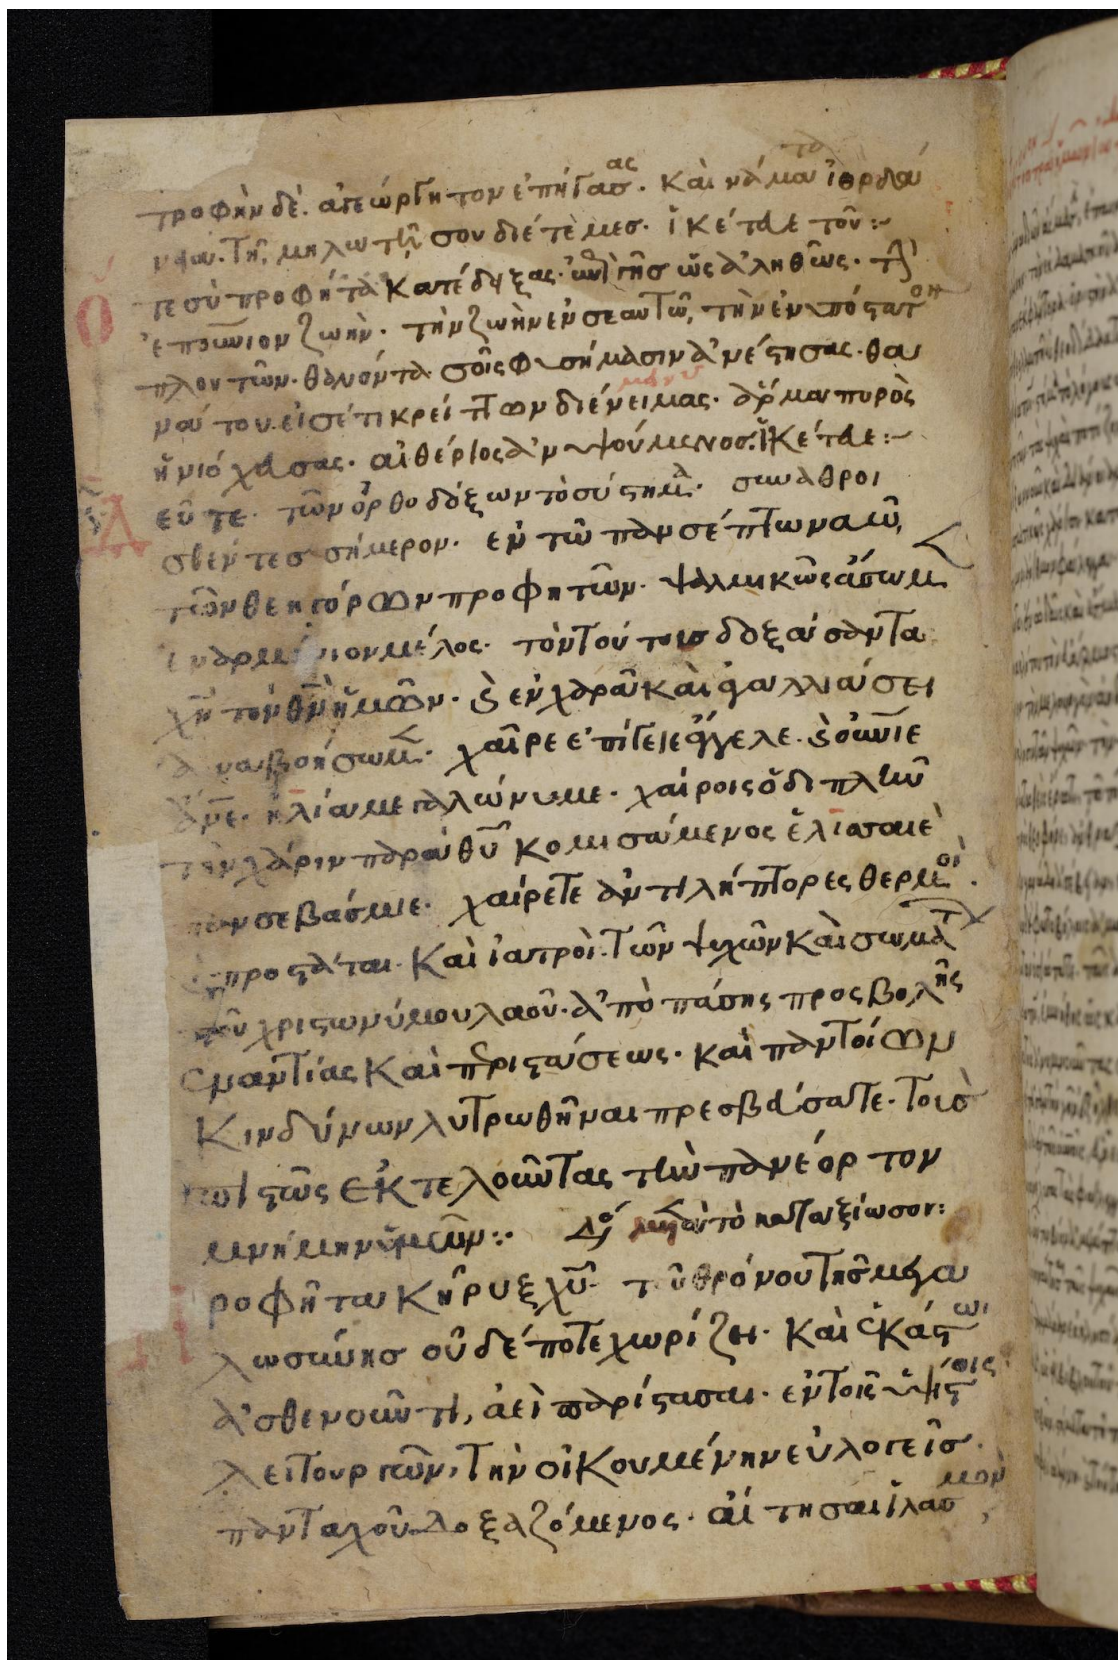 τροφὴν δὲ. ἀγεώργητον ἐπήγασας. καὶ νάμα ἰορδά
νου. τῆ μηλωτῆ σου διέτεμες. ἱκέτευε τὸν:-
σὺ προφῆτα κατέδυξας. ὡς ἀληθῶς. τὴν
ἐπουράνιον ζωὴν. τὴν ζωὴν ἐν σεαυτῶ, τὴν ἐνυπόστατον
πλουτῶν. θανόντα σοῖς φυσήμασιν ἀνέστησας. θα
νάτου εἰσέτι κρείττων διέμεινας. ἅρμα πυρὸς
ἡνιόχευσας. αἰθέριος ἀνυψούμενος. ἱκέτευε:-
εῦτε. τῶν ὀρθοδόξων τὸ σύστημα. συναθροι
σθέντες σήμερον. ἐν τῶ πανσέπτω ναῶ,
τῶν θεηγόρων προφητῶν. ψαλμικῶς ἄσωμεν
ἐναρμόνιον μέλος. τὸν τούτους δοξάσαντα
χν τὸν θν ἡμῶν. καὶ ἐν χαρᾶ καὶ ἀγαλλιάσει
ἀναβοήσωμεν. χαῖρε ἐπίγειε ἄγγελε. καὶ οὐνιε
ἄνε. ἠλία μεγαλώνυμε. χαίροις ὁ διπλῆν
τὴν χάριν παρὰ θυ κομισάμενος ἐλισσαιὲ
πανσεβάσμιε. χαίρετε ἀντιλήπτορες θερμοὶ.
προστάται. καὶ ἰατροὶ. τῶν ψυχῶν καὶ σωμάτων
τοῦ χριστωνύμου λαοῦ. ἀπὸ πάσης προσβολῆς
ἐναντίας καὶ περιστάσεως. καὶ παντοίων
κινδύνων λυτρωθῆναι πρεσβεύσατε. τοὺς
πιστῶς ἐκτελοῦντας τὴν πανέορτον
μνήμην ὑμῶν:. καταξίωσον:
ροφῆτα κῆρυξ χυ. τοῦ θρόνου τῆς μεγα
λωσύνης οὐδέποτε χωρίζη. καὶ ἑκάστωι
ἀσθενοῦντι, ἀεὶ παρίστασαι. ἐν τοῖς ὑψίστοις
λειτουργῶν, τὴν οἰκουμένην εὐλογεῖς.
πανταχοῦ δοξαζόμενος. αἴτησαι ἱλασμὸν